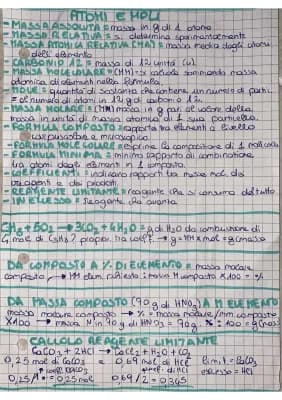 ATOMI E MOLI
-MASSA ASSOLUTA = massa in g di 1 atomo
-MASSA RELATIVA = si determina sperimentalmente
-MASSA ATOMICA RELATIVA (MA) = massa media degli atomi
dell'elemento
-CARBONIO 12 = massa di 12 unità (u)
-MASSA MOLECOLARE = (MM) → si calcola sommando massa
atomica di elementi nella formula.
-MOLE = quantità di sostanza che contiene un numero di parti.
= al numero di atomi in 12g di carbonio 12.
-MASSA MOLARE = (MM) massa in g pari al valore della
massa in unità di massa atomica di 1 sua particella.
-FORMULA COMPOSTO = rapporto tra elementi a livello
macroscopico e microscopico
-FORMULA MOLECOLARE = esprime la composizione di 1 molecola
-FORMULA MINIMA = minimo rapporto di combinazione
tra atomi degli elementi in 1 composto.
-COEFFICIENTI = indicano rapporti tra masse mol. dei
reagenti e dei prodotti.
-REAGENTE LIMITANTE = reagente che si consuma del tutto
-IN ECCESSO = reagente che avanza
C3H8 + 5O2 → 3CO2 + 4H2O = g di H2O da combustione di
mole di C3H8? propor. tra coeff. → g = MM x mol = g (massa
DA COMPOSTO A % DI ELEMENTO = massa molare
composto → MM elem. richiesto : massa M composto X 100 = %
DA MASSA COMPOSTO (90g di HNO3) A M ELEMENTO
massa molare composto → % = massa molare/mm composto
X100 → massa N in 90g di HNO3 = 90g · % : 100 = g (massa
CALCOLO REAGENTE LIMITANTE
CaCO3 + 2HCl → CaCl2 + H2O + CO2
0,25 mol di CaCO3 = 0,69 mol di HCl limit = CaCO3
coeff. CaCO3 coeff. di HCl eccesso = HCl
0,25/1 = 0,25 mol 0,69/2 = 0,345